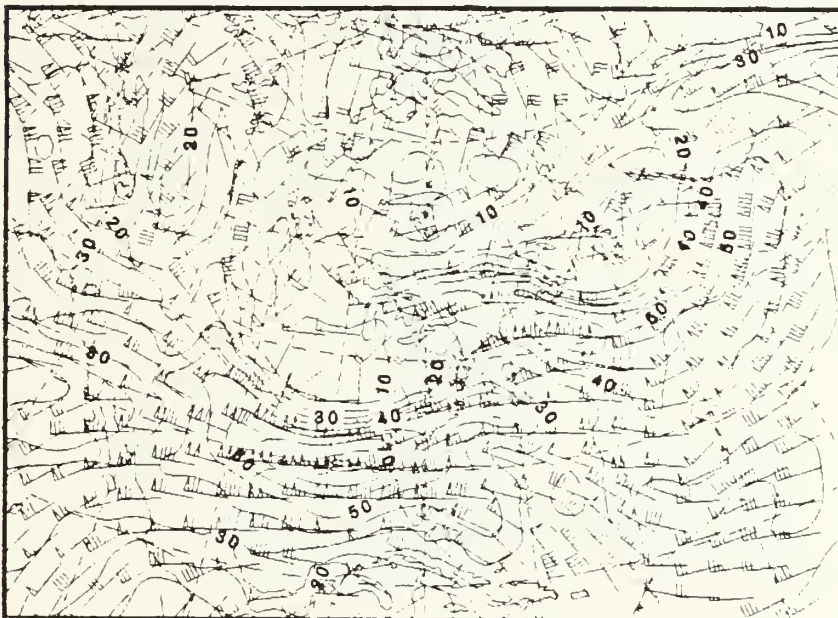 10
30
20
20
60
10
10
10
20
30
50
60
30
10
20
40
30
40
30
50
30
20